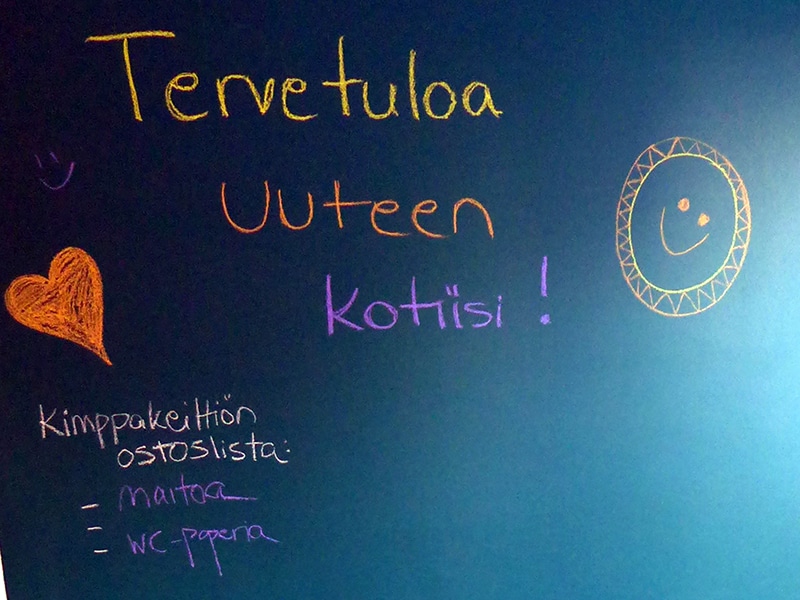 Tervetuloa
uuteen
kotiisi!
Kimppakeittiön
ostoslista:
- maitoa
-
- WC-paperia